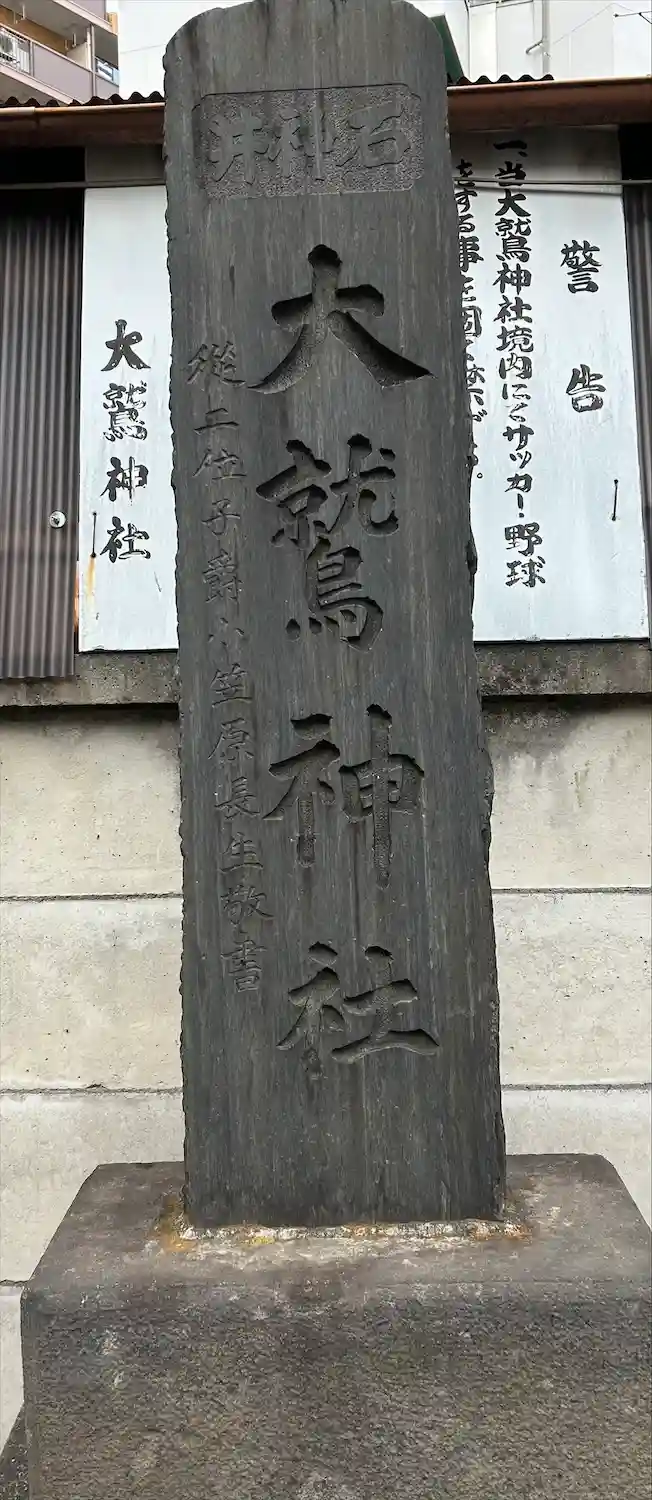 石神井
大鷲神社
從二位子爵小笠原長生敬書
警告
一、当大鷲神社境内にてサッカー野球
をする事を固く
大鷲神社